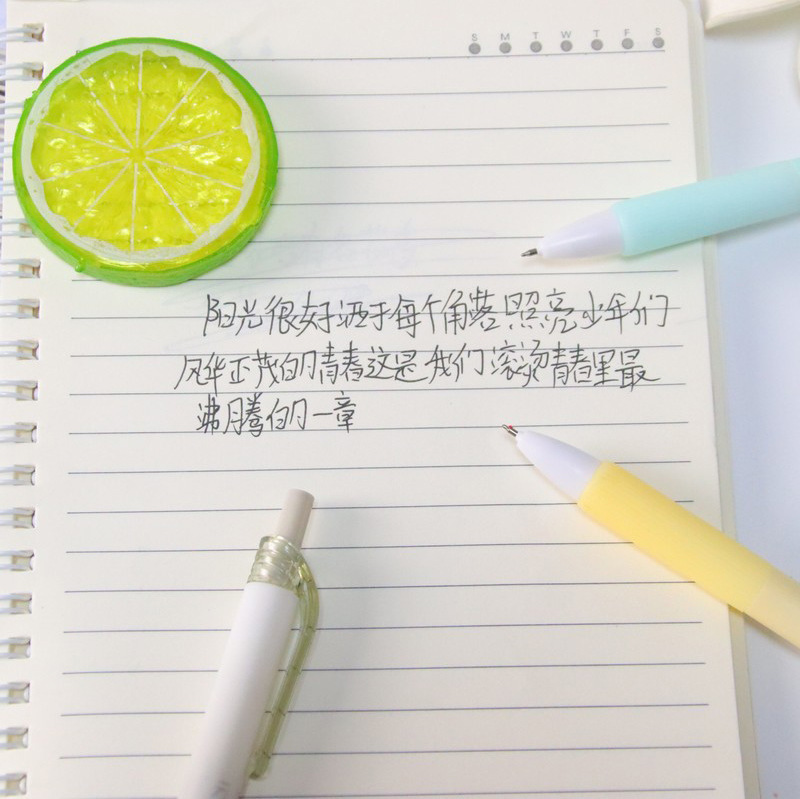 S M T W T F S
阳光很好洒于每个角落照亮少年们
风华正茂的青春这是我们滚烫青春里最
沸腾的一章